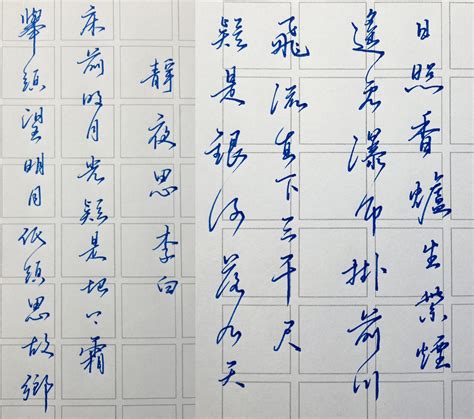 日照香爐生紫煙
遙看瀑布掛前川
飛流直下三千尺
疑是銀河落九天
靜夜思 李白
床前明月光疑是地上霜
舉頭望明月低頭思故鄉